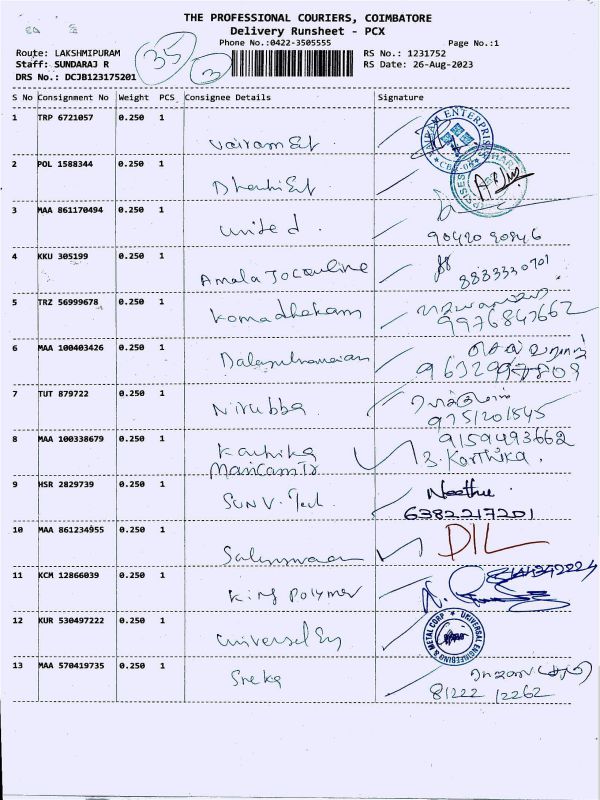 THE PROFESSIONAL COURIERS, COIMBATORE
Delivery Runsheet - PCX
Phone No.:0422-3505555
Page No.:1
Route: LAKSHMIPURAM
RS No.: 1231752
Staff: SUNDARAJ R
RS Date: 26-Aug-2023
DRS No.: DCJB123175201
35
3
S No Consignment No Weight PCS Consignee Details Signature
1 TRP 6721057 0.250 1
Vairam Ent
2 POL 1588344 0.250 1
3 MAA 861170494 0.250 1
United.
90420 90846
4 KKU 305199 0.250 1
Amala Jocquline
8883330701
5 TRZ 56999678 0.250 1
9976847662
6 MAA 100403426 0.250 1
7 TUT 879722 0.250 1
Nirubba
9751201545
8 MAA 100338679 0.250 1
9159493662
Karthika
S. Karthika.
9 HSR 2829739 0.250 1
SUN V. Tech
Neethu
6382217201
10 MAA 861234955 0.250 1
DIL
11 KCM 12866039 0.250 1
King Polymer
12 KUR 530497222 0.250 1
Universal Eng
UNIVERSAL ENGINEERING & METAL CORP
13 MAA 570419735 0.250 1
Sreka
81222 12262